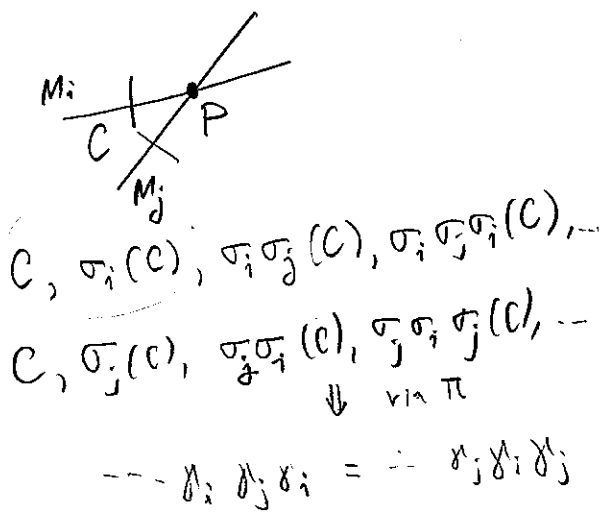 Mi
P
C
Mj
C, σi(C), σiσj(C), σiσjσi(C), ...
C, σj(C), σjσi(C), σjσiσj(C), ...
⇓ via π
--- γi γj γi = ... γj γi γj